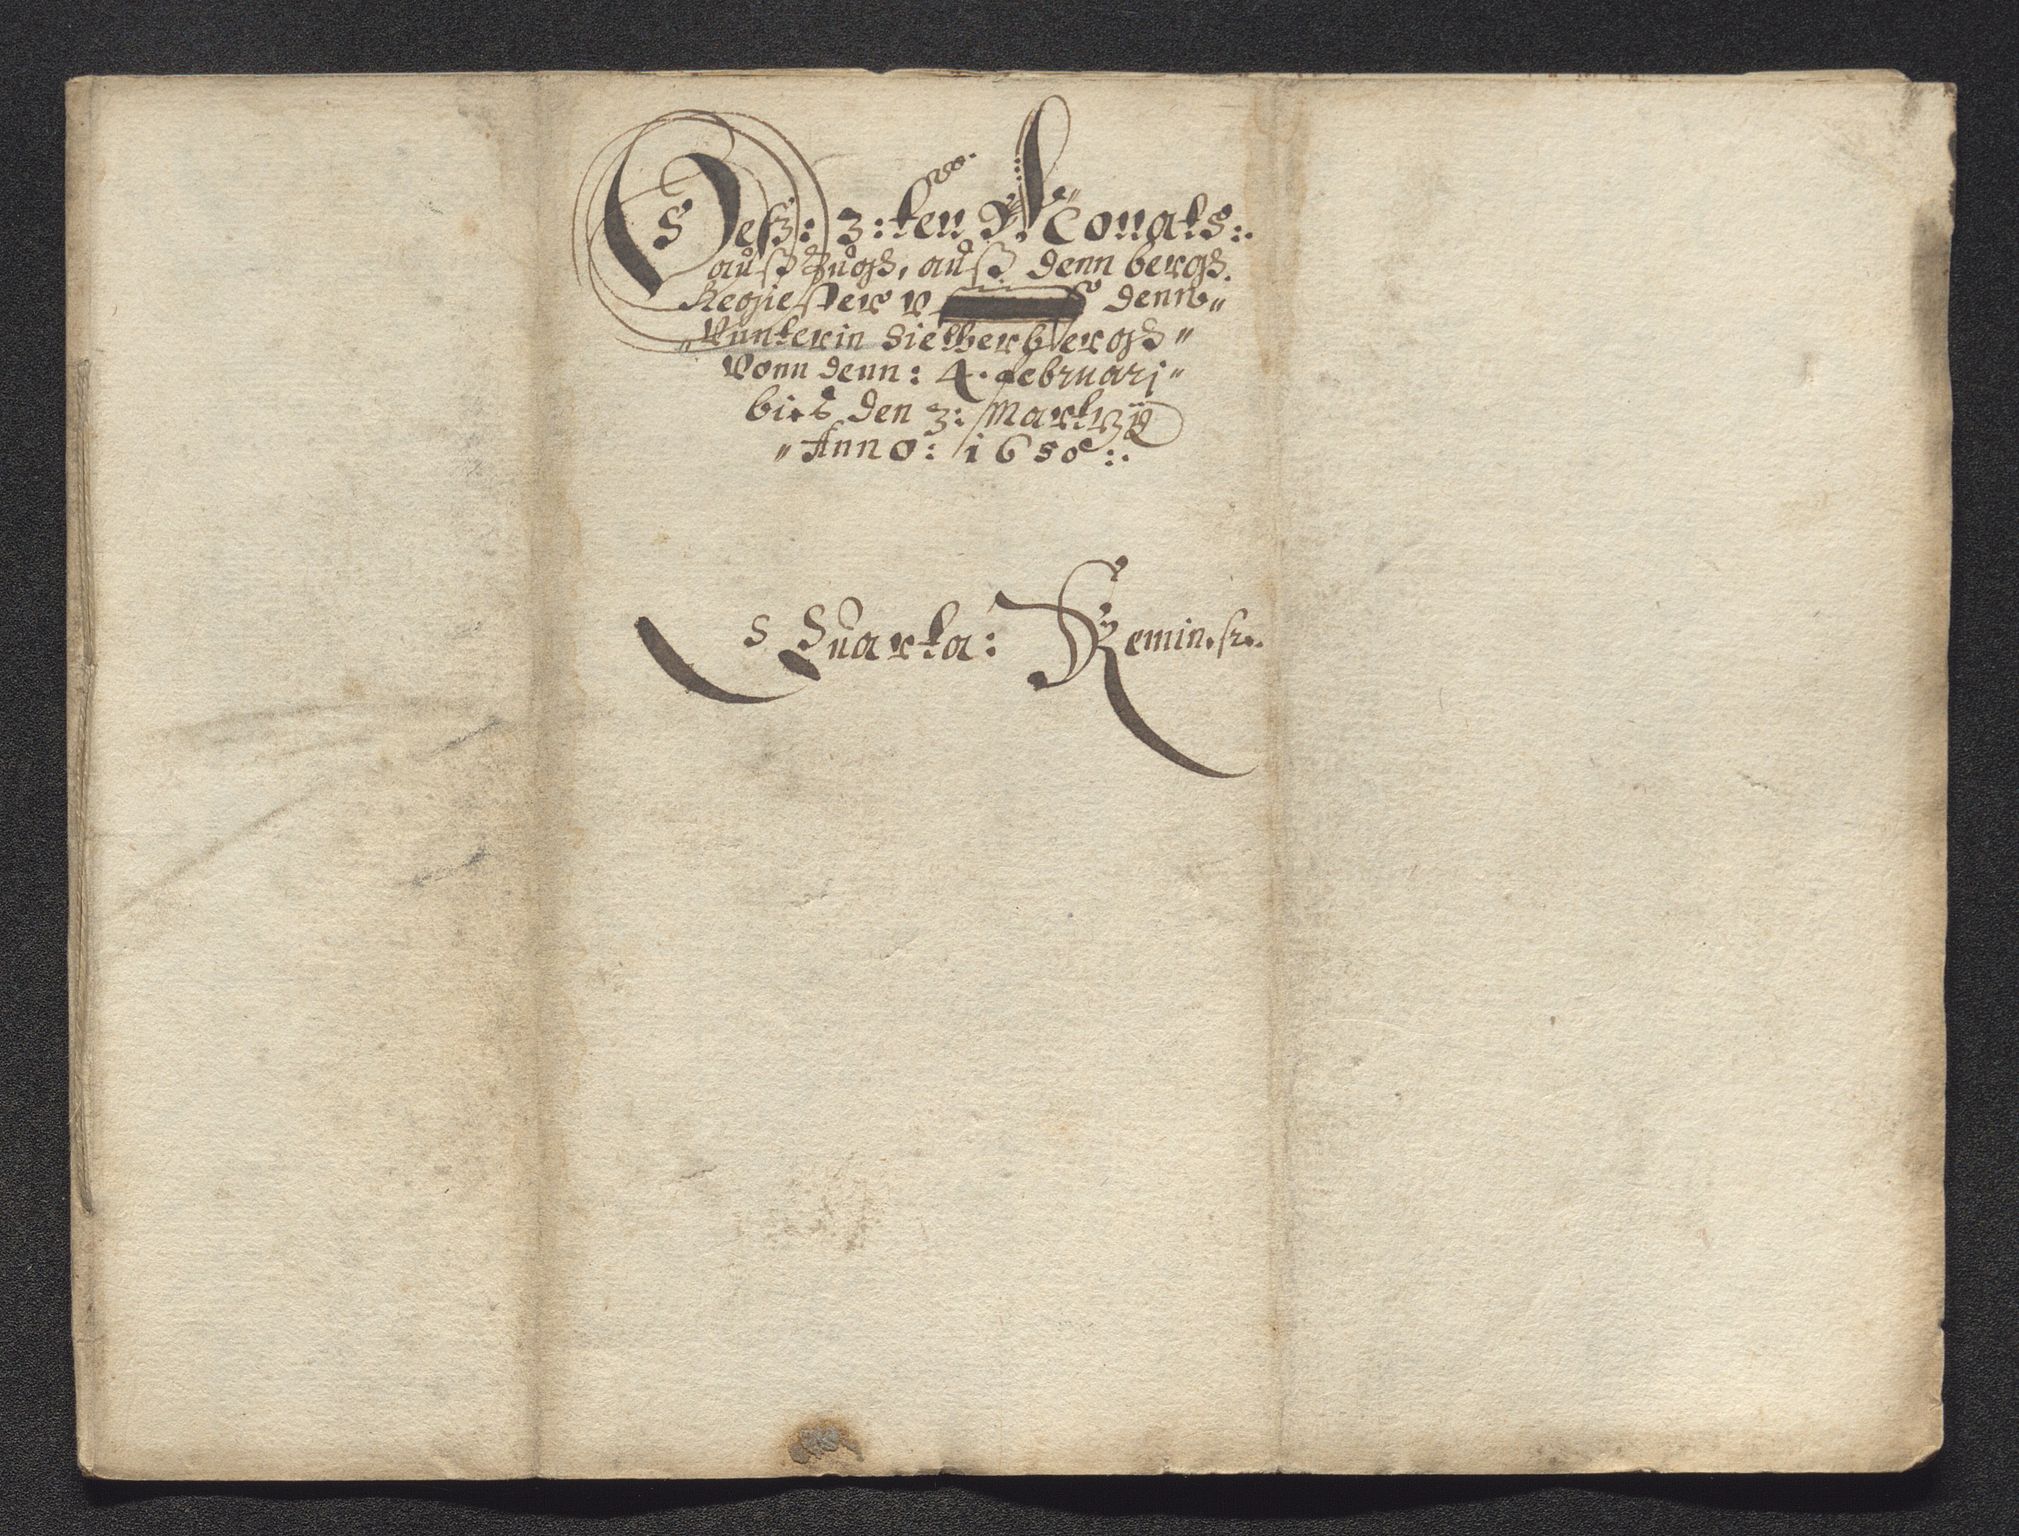 Deß: 3:ten Monats:.
außzugs, auß denn bergs
Regiester v denn
Vunterin Sielberbergs
Vonn denn: 4. Februarj
bies den 3: Martzÿ
Anno: 1658:.
Quarta: Remin.sc.